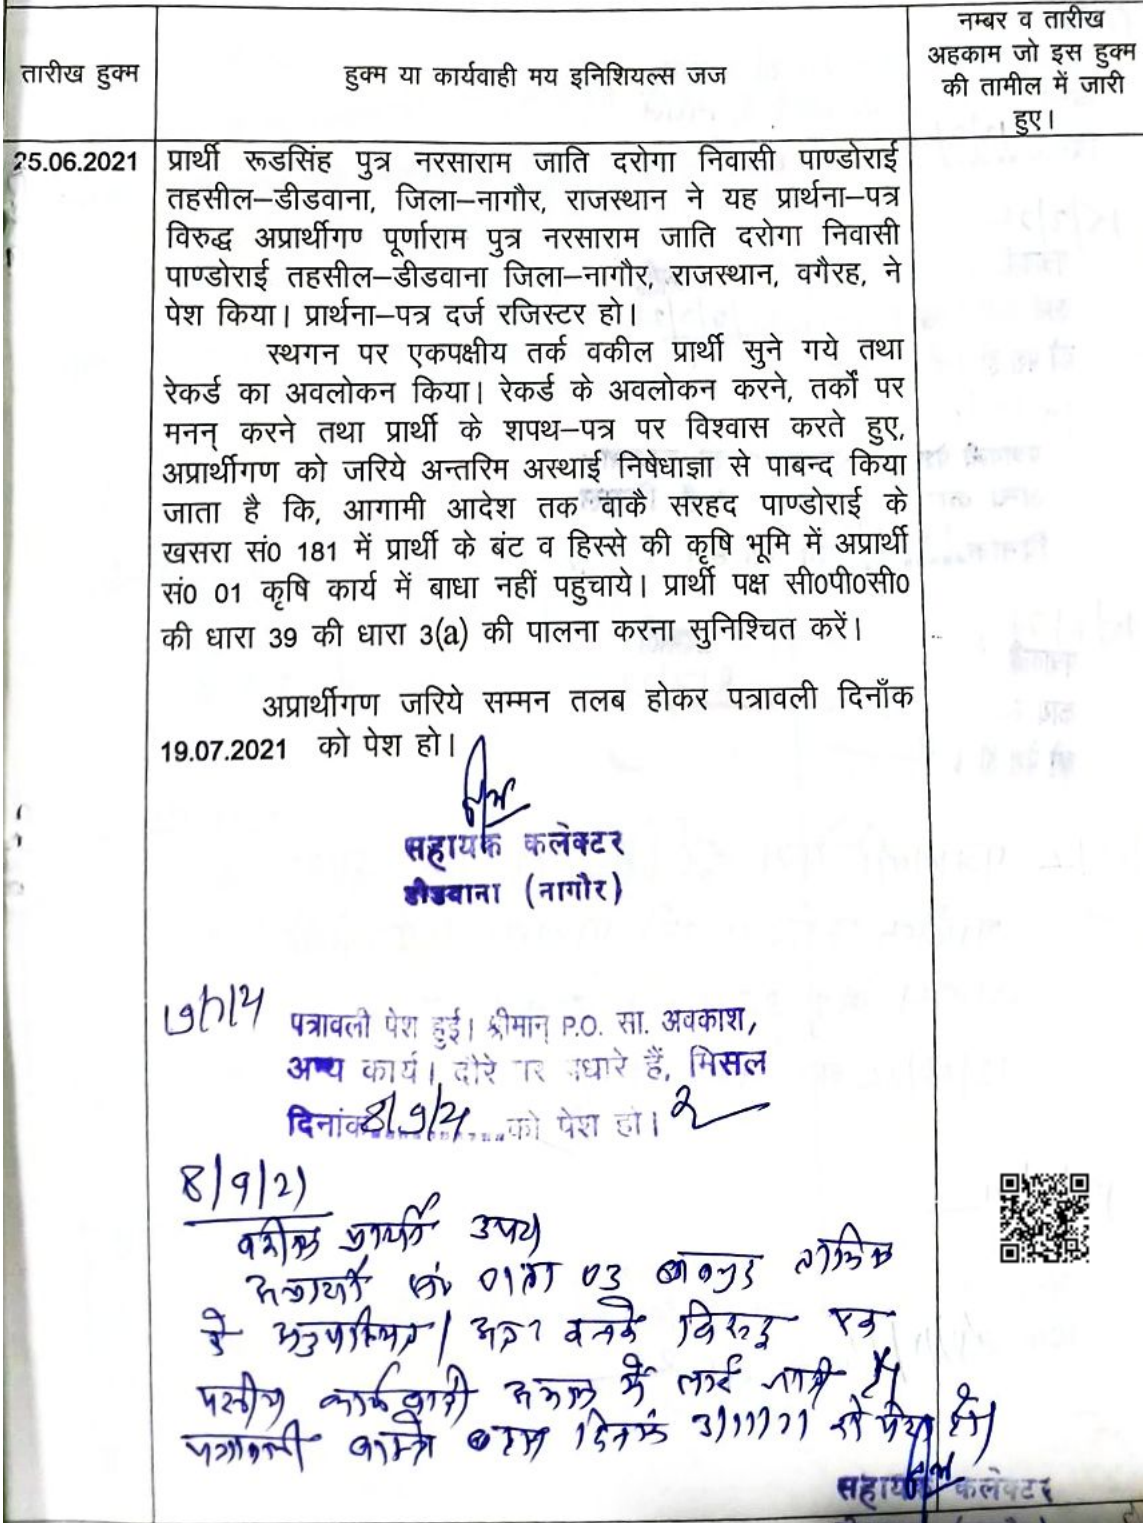 नम्बर व तारीख
अहकाम जो इस हुक्म
की तामील में जारी
हुए।
तारीख हुक्म
हुक्म या कार्यवाही मय इनिशियल्स जज
25.06.2021
प्रार्थी रूडसिंह पुत्र नरसाराम जाति दरोगा निवासी पाण्डोराई
तहसील–डीडवाना, जिला–नागौर, राजस्थान ने यह प्रार्थना–पत्र
विरुद्ध अप्रार्थीगण पूर्णाराम पुत्र नरसाराम जाति दरोगा निवासी
पाण्डोराई तहसील–डीडवाना जिला–नागौर, राजस्थान, वगैरह, ने
पेश किया। प्रार्थना–पत्र दर्ज रजिस्टर हो।
स्थगन पर एकपक्षीय तर्क वकील प्रार्थी सुने गये तथा
रेकर्ड का अवलोकन किया। रेकर्ड के अवलोकन करने, तर्कों पर
मनन् करने तथा प्रार्थी के शपथ–पत्र पर विश्वास करते हुए,
अप्रार्थीगण को जरिये अन्तरिम अस्थाई निषेधाज्ञा से पाबन्द किया
जाता है कि, आगामी आदेश तक वाकै सरहद पाण्डोराई के
खसरा सं0 181 में प्रार्थी के बंट व हिस्से की कृषि भूमि में अप्रार्थी
सं0 01 कृषि कार्य में बाधा नहीं पहुंचाये। प्रार्थी पक्ष सी0पी0सी0
की धारा 39 की धारा 3(a) की पालना करना सुनिश्चित करें।
अप्रार्थीगण जरिये सम्मन तलब होकर पत्रावली दिनाँक
19.07.2021 को पेश हो।
सहायक कलेक्टर
डीडवाना (नागौर)
पत्रावली पेश हुई। श्रीमान् P.O. सा. अवकाश,
अन्य कार्य। दौरे पर पधारे हैं, मिसल
दिनांक 8/9/21 को पेश हो।
8/9/21
वकील प्रार्थी उप०
अप्रार्थी सं० 01 ता 03 बावजूद तामिल
के अनुपस्थित। अतः उनके विरुद्ध एक
पक्षीय कार्यवाही अमल में लाई जाती है।
पत्रावली वास्ते बहस दिनांक को पेश हो।
सहायक कलेक्टर